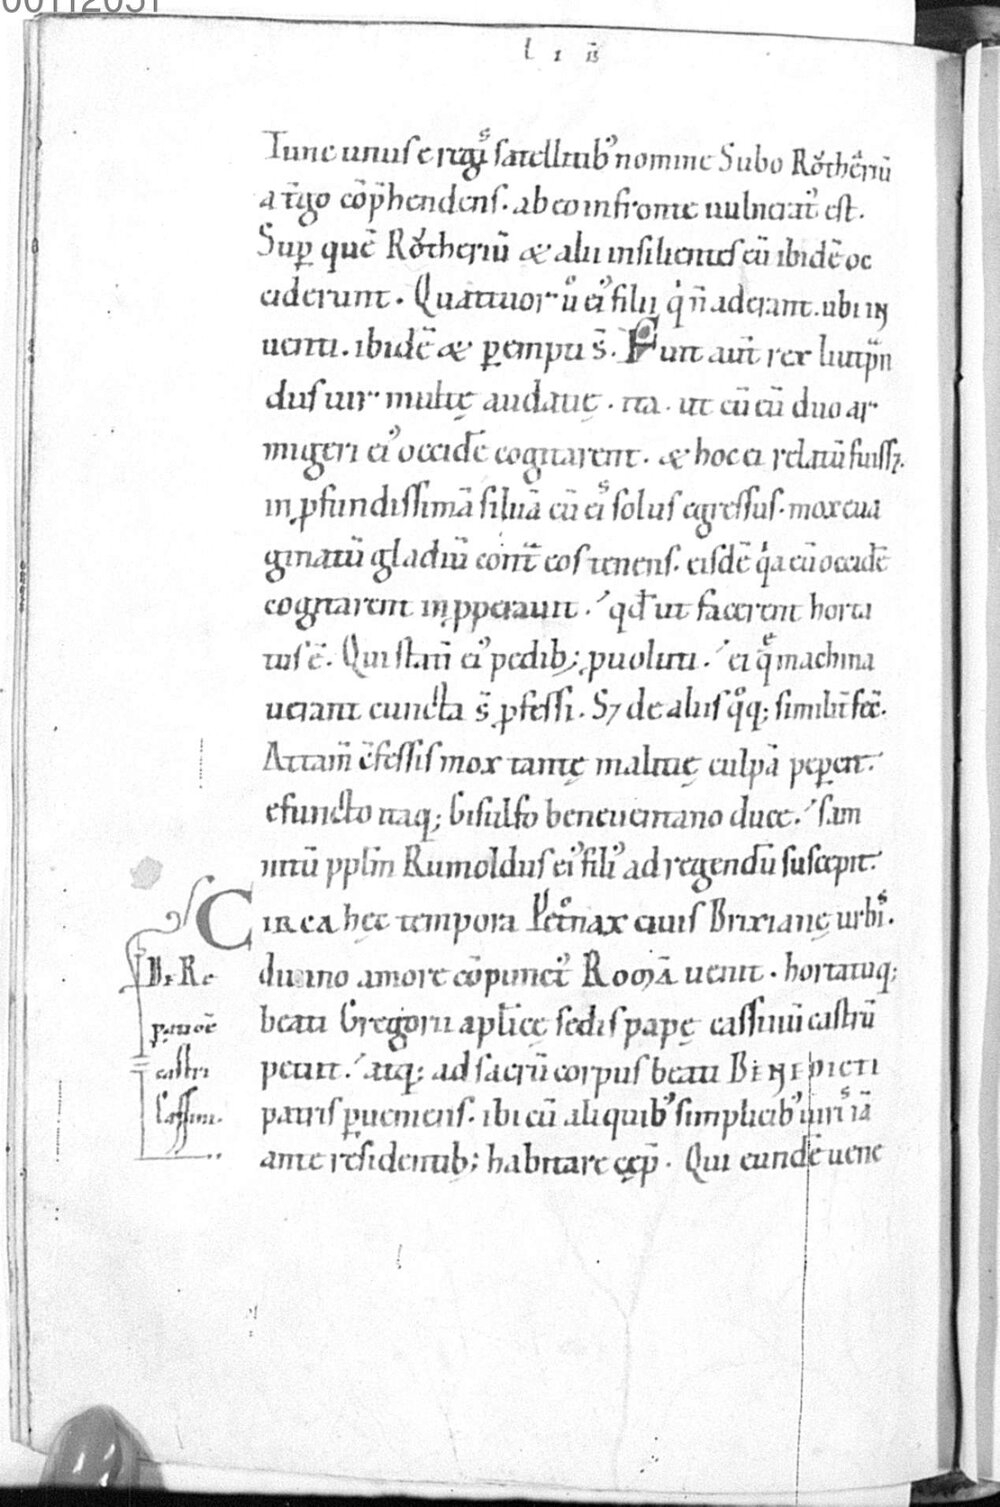 00112051
LIB̄
Tunc unus e regis satellitib᾽ nomine Subo Rotheriū
a t̄go cōp̄hendens. ab eo in fronte uulnerat᾽ est.
Sup̱ quē Rotheriū & alii insilientes eū ibidē oc
ciderunt. Quattuor ů ei᾽ filii q̇ n̄ aderant. ubi in
uenti. ibidē & p̱empti s̄. Fuit aut̄ rex liutp̄n
dus uir multę audatię. ita. ut cū eū duo ar
migeri ei᾽ occidē cogitarent. & hoc ei relatū fuiss&.
in p̱fundissimā siluā cū eis solus egressus. mox eua
ginatū gladiū cont̄ eos tenens. eisdē q̇a eū occidē
cogitarent inp̱perauit. qd̄ ut facerent horta
tus ē. Qui stati᷄ ei᾽ pedib; p̱uoluti. ei quę machina
uerant cuncta s̄ p̱fessi. S; de aliis q̊q; similit̄ fec̄.
Attam̄ c̄fessis mox tantę malitię culpā pep̱cit.
efuncto itaq; Gisulfo beneuentano duce. sam
nitū pplm̄ Rumoldus ei᾽ fili᾽ ad regendū suscepit.
CIRCA hęc tempora Petonax ciuis Brixianę urbis.
diuino amore cōpunct᾽ Romā uenit. hortatuq;
beati Gregorii aplicę sedis papę cassinū castrū
petiit. atq; ad sacrū corpus beati BENEDICTI
patris p̱ueniens. ibi cū aliquib᾽ simplicib᾽ uiris iā
ante residentib; habitare cęp̄. Qui eundē uene
De Re
patioē
castri
Cassini.